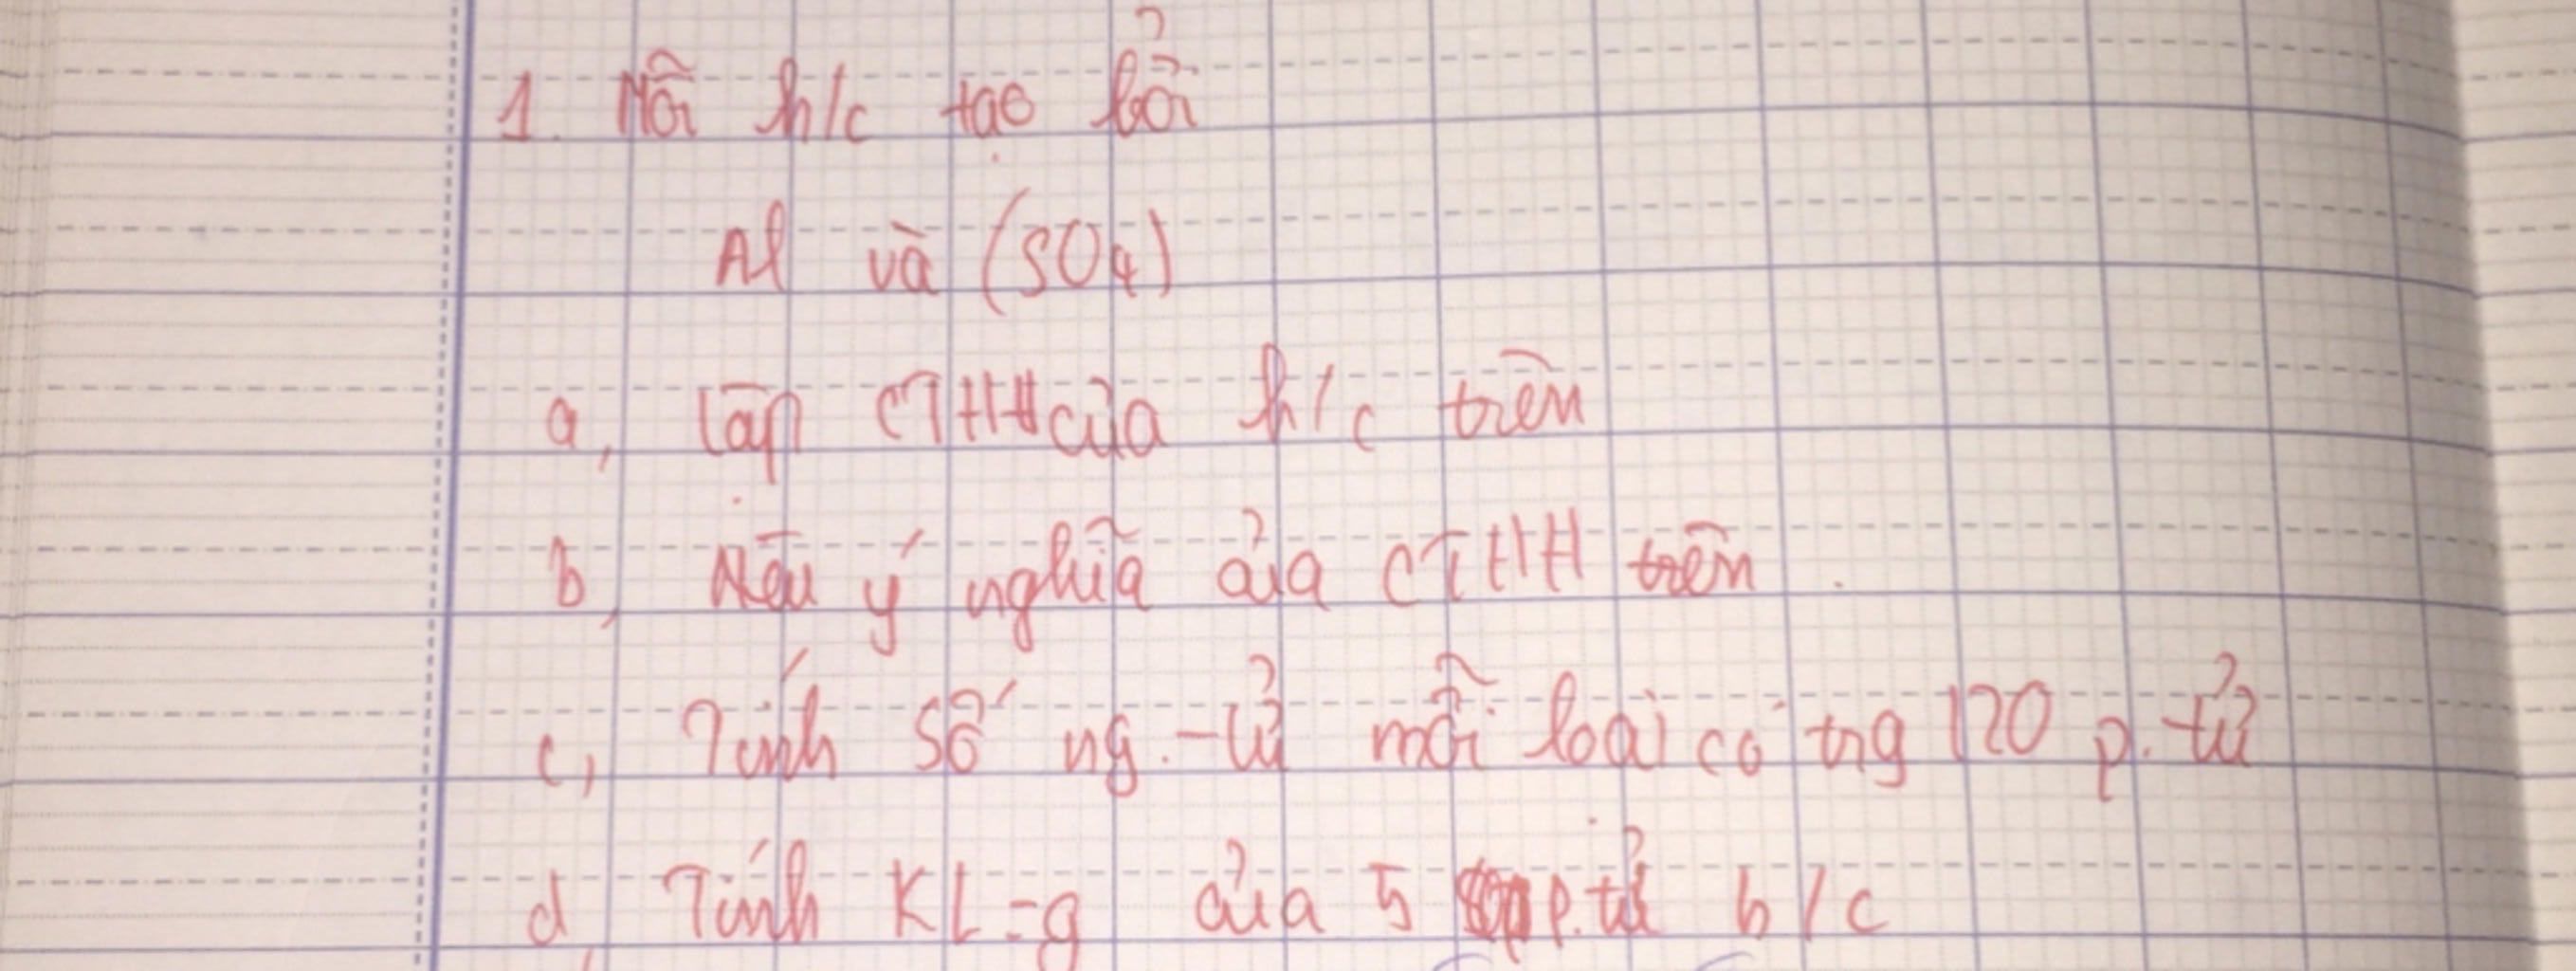 1. Mỗi h/c tạo bởi
Al và (SO4)
a, Lập CTHH của h/c trên
b, Nêu ý nghĩa của CTHH trên.
c, Tính số ng.-tử mỗi loại có trg 120 p. tử
d, Tính KL = g của 5 p. tử h/c